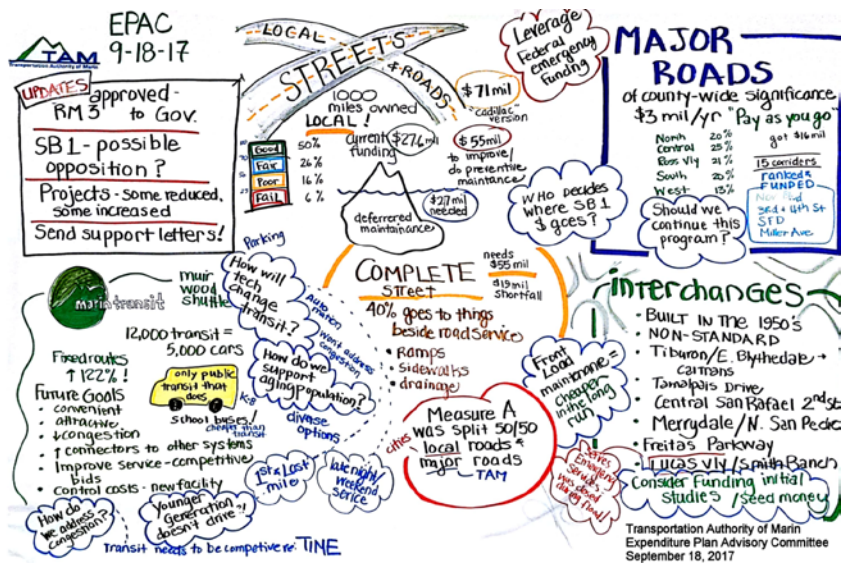 EPAC
9-18-17
TAM
Transportation Authority of Marin
UPDATES
approved -
RM3 to Gov.
SB1 - possible
opposition?
Projects - some reduced,
some increased
Send support letters!
LOCAL
STREETS
& ROADS
1000
miles owned
LOCAL!
Good 50%
Fair 26%
Poor 16%
Fail 6%
current
funding
$27.6 mil
$71 mil
"cadillac"
version
$55 mil
to improve/
do preventive
maintance
$27 mil
needed
deferred
maintainance
Leverage
Federal
emergency
Funding
WHO DECIDES
where SB1
$ goes?
MAJOR
ROADS
of county-wide significance
$3 mil/yr "Pay as you go"
got $16 mil
North 20%
Central 25%
Ross Vly 21%
South 20%
West 13%
15 corriders
ranked &
FUNDED
3rd & 4th St
SFD
Miller Ave
Should we
continue this
program?
marin transit
muir
wood
shuttle
12,000 transit =
5,000 cars
Fixed routes
↑ 122%!
only public
transit that
does
K-8
school buses/
cheaper than
transit
Future Goals
• convenient
attractive
• ↓ congestion
• ↑ connectors to other systems
• Improve service - competitive
bids
• Control costs - new facility
How do
we address
congestion?
Younger
Generation
doesn't drive!
Transit needs to be competive re: TIME
Parking
How will
tech
change
transit?
Auto
mation
Wont address
congestion
How do we
support
aging population?
diverse
options
1st & Last
mile
late night/
weekend
serice
COMPLETE
STREET
needs
$55 mil
$19 mil
shortfall
40% goes to things
beside road service
• Ramps
• sidewalks
• drainage
Measure A
was split 50/50
local roads &
major roads
TAM
cities
Front
Load
maintenance =
cheaper
in the long
run
Serves
Emergency
Services
was closed
during flood!
interchanges
• BUILT IN THE 1950's
• NON-STANDARD
• Tiburon/E. Blythedale →
caltrans
• Tamalpais Drive
• Central San Rafael 2nd st
• Merrydale/N. San Pedro
• Freitas Parkway
• Lucas Vly/Smith Ranch
Consider Funding initial
studies /seed money
Transportation Authority of Marin
Expenditure Plan Advisory Committee
September 18, 2017